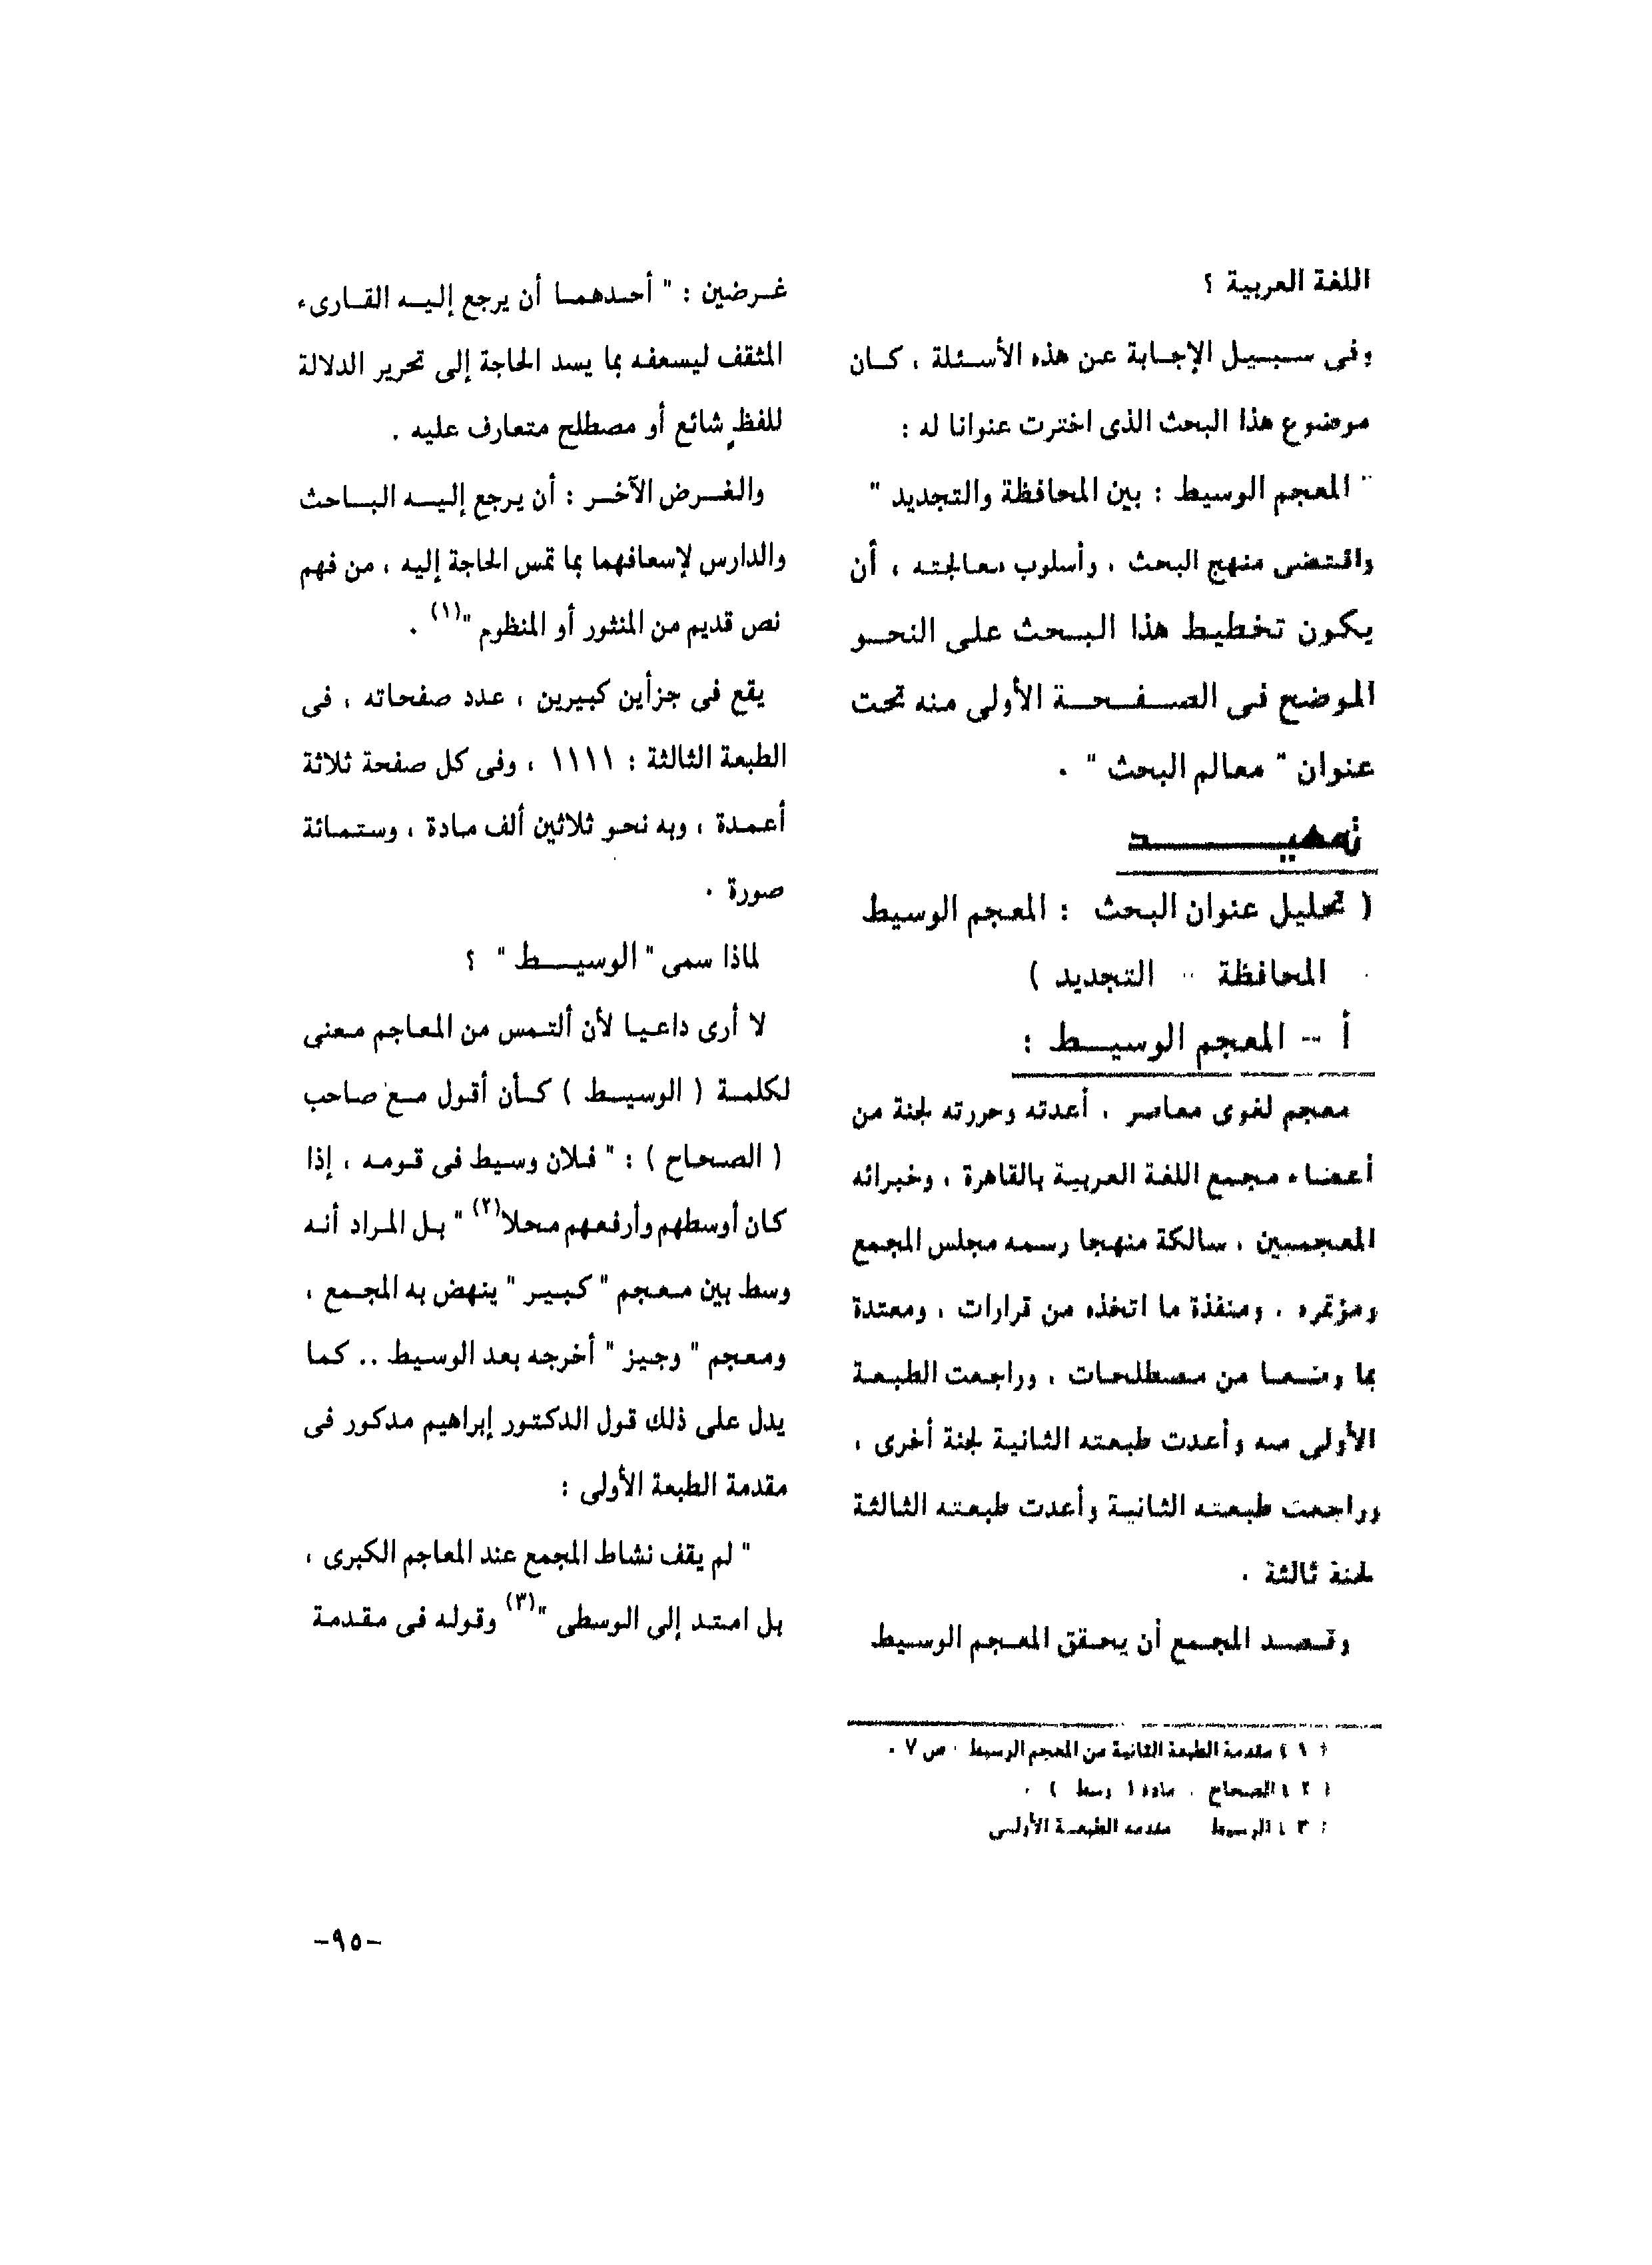 اللغة العربية ؟
وفى سبيل الإجابة عن هذه الأسئلة ، كان
موضوع هذا البحث الذى اخترت عنوانا له :
" المعجم الوسيط : بين المحافظة والتجديد "
واقتضى منهج البحث ، وأسلوب معالجته ، أن
يكون تخطيط هذا البحث على النحو
الموضح فى الصفحة الأولى منه تحت
عنوان " معالم البحث " .
تمهيد
( تحليل عنوان البحث : المعجم الوسيط
المحافظة - التجديد )
أ - المعجم الوسيط :
معجم لغوى معاصر ، أعدته وحررته لجنة من
أعضاء مجمع اللغة العربية بالقاهرة ، وخبرائه
المعجميين ، سالكة منهجا رسمه مجلس المجمع
ومؤتمره ، ومنفذة ما اتخذه من قرارات ، ومعتدة
بما وضعا من مصطلحات ، وراجعت الطبعة
الأولى منه وأعدت طبعته الثانية لجنة أخرى ،
وراجعت طبعته الثانية وأعدت طبعته الثالثة
لجنة ثالثة .
وقصد المجمع أن يحقق المعجم الوسيط
غرضين : " أحدهما أن يرجع إليه القارىء
المثقف ليسعفه بما يسد الحاجة إلى تحرير الدلالة
للفظٍ شائع أو مصطلح متعارف عليه .
والغرض الآخر : أن يرجع إليه الباحث
والدارس لإسعافهما بما تمس الحاجة إليه ، من فهم
نص قديم من المنثور أو المنظوم "(١) .
يقع فى جزأين كبيرين ، عدد صفحاته ، فى
الطبعة الثالثة : ١١١١ ، وفى كل صفحة ثلاثة
أعمدة ، وبه نحو ثلاثين ألف مادة ، وستمائة
صورة .
لماذا سمى " الوسيط " ؟
لا أرى داعيا لأن ألتمس من المعاجم معنى
لكلمة ( الوسيط ) كأن أقول مع صاحب
( الصحاح ) : " فلان وسيط فى قومه ، إذا
كان أوسطهم وأرفعهم محلا(٢) " بل المراد أنه
وسط بين معجم " كبير " ينهض به المجمع ،
ومعجم " وجيز " أخرجه بعد الوسيط .. كما
يدل على ذلك قول الدكتور إبراهيم مدكور فى
مقدمة الطبعة الأولى :
" لم يقف نشاط المجمع عند المعاجم الكبرى ،
بل امتد إلى الوسطى "(٣) وقوله فى مقدمة
( ١ ) مقدمة الطبعة الثانية من المعجم الوسيط . ص ٧ .
( ٢ ) الصحاح . مادة ( وسط ) .
( ٣ ) الوسيط مقدمة الطبعة الأولى
-٩٥-